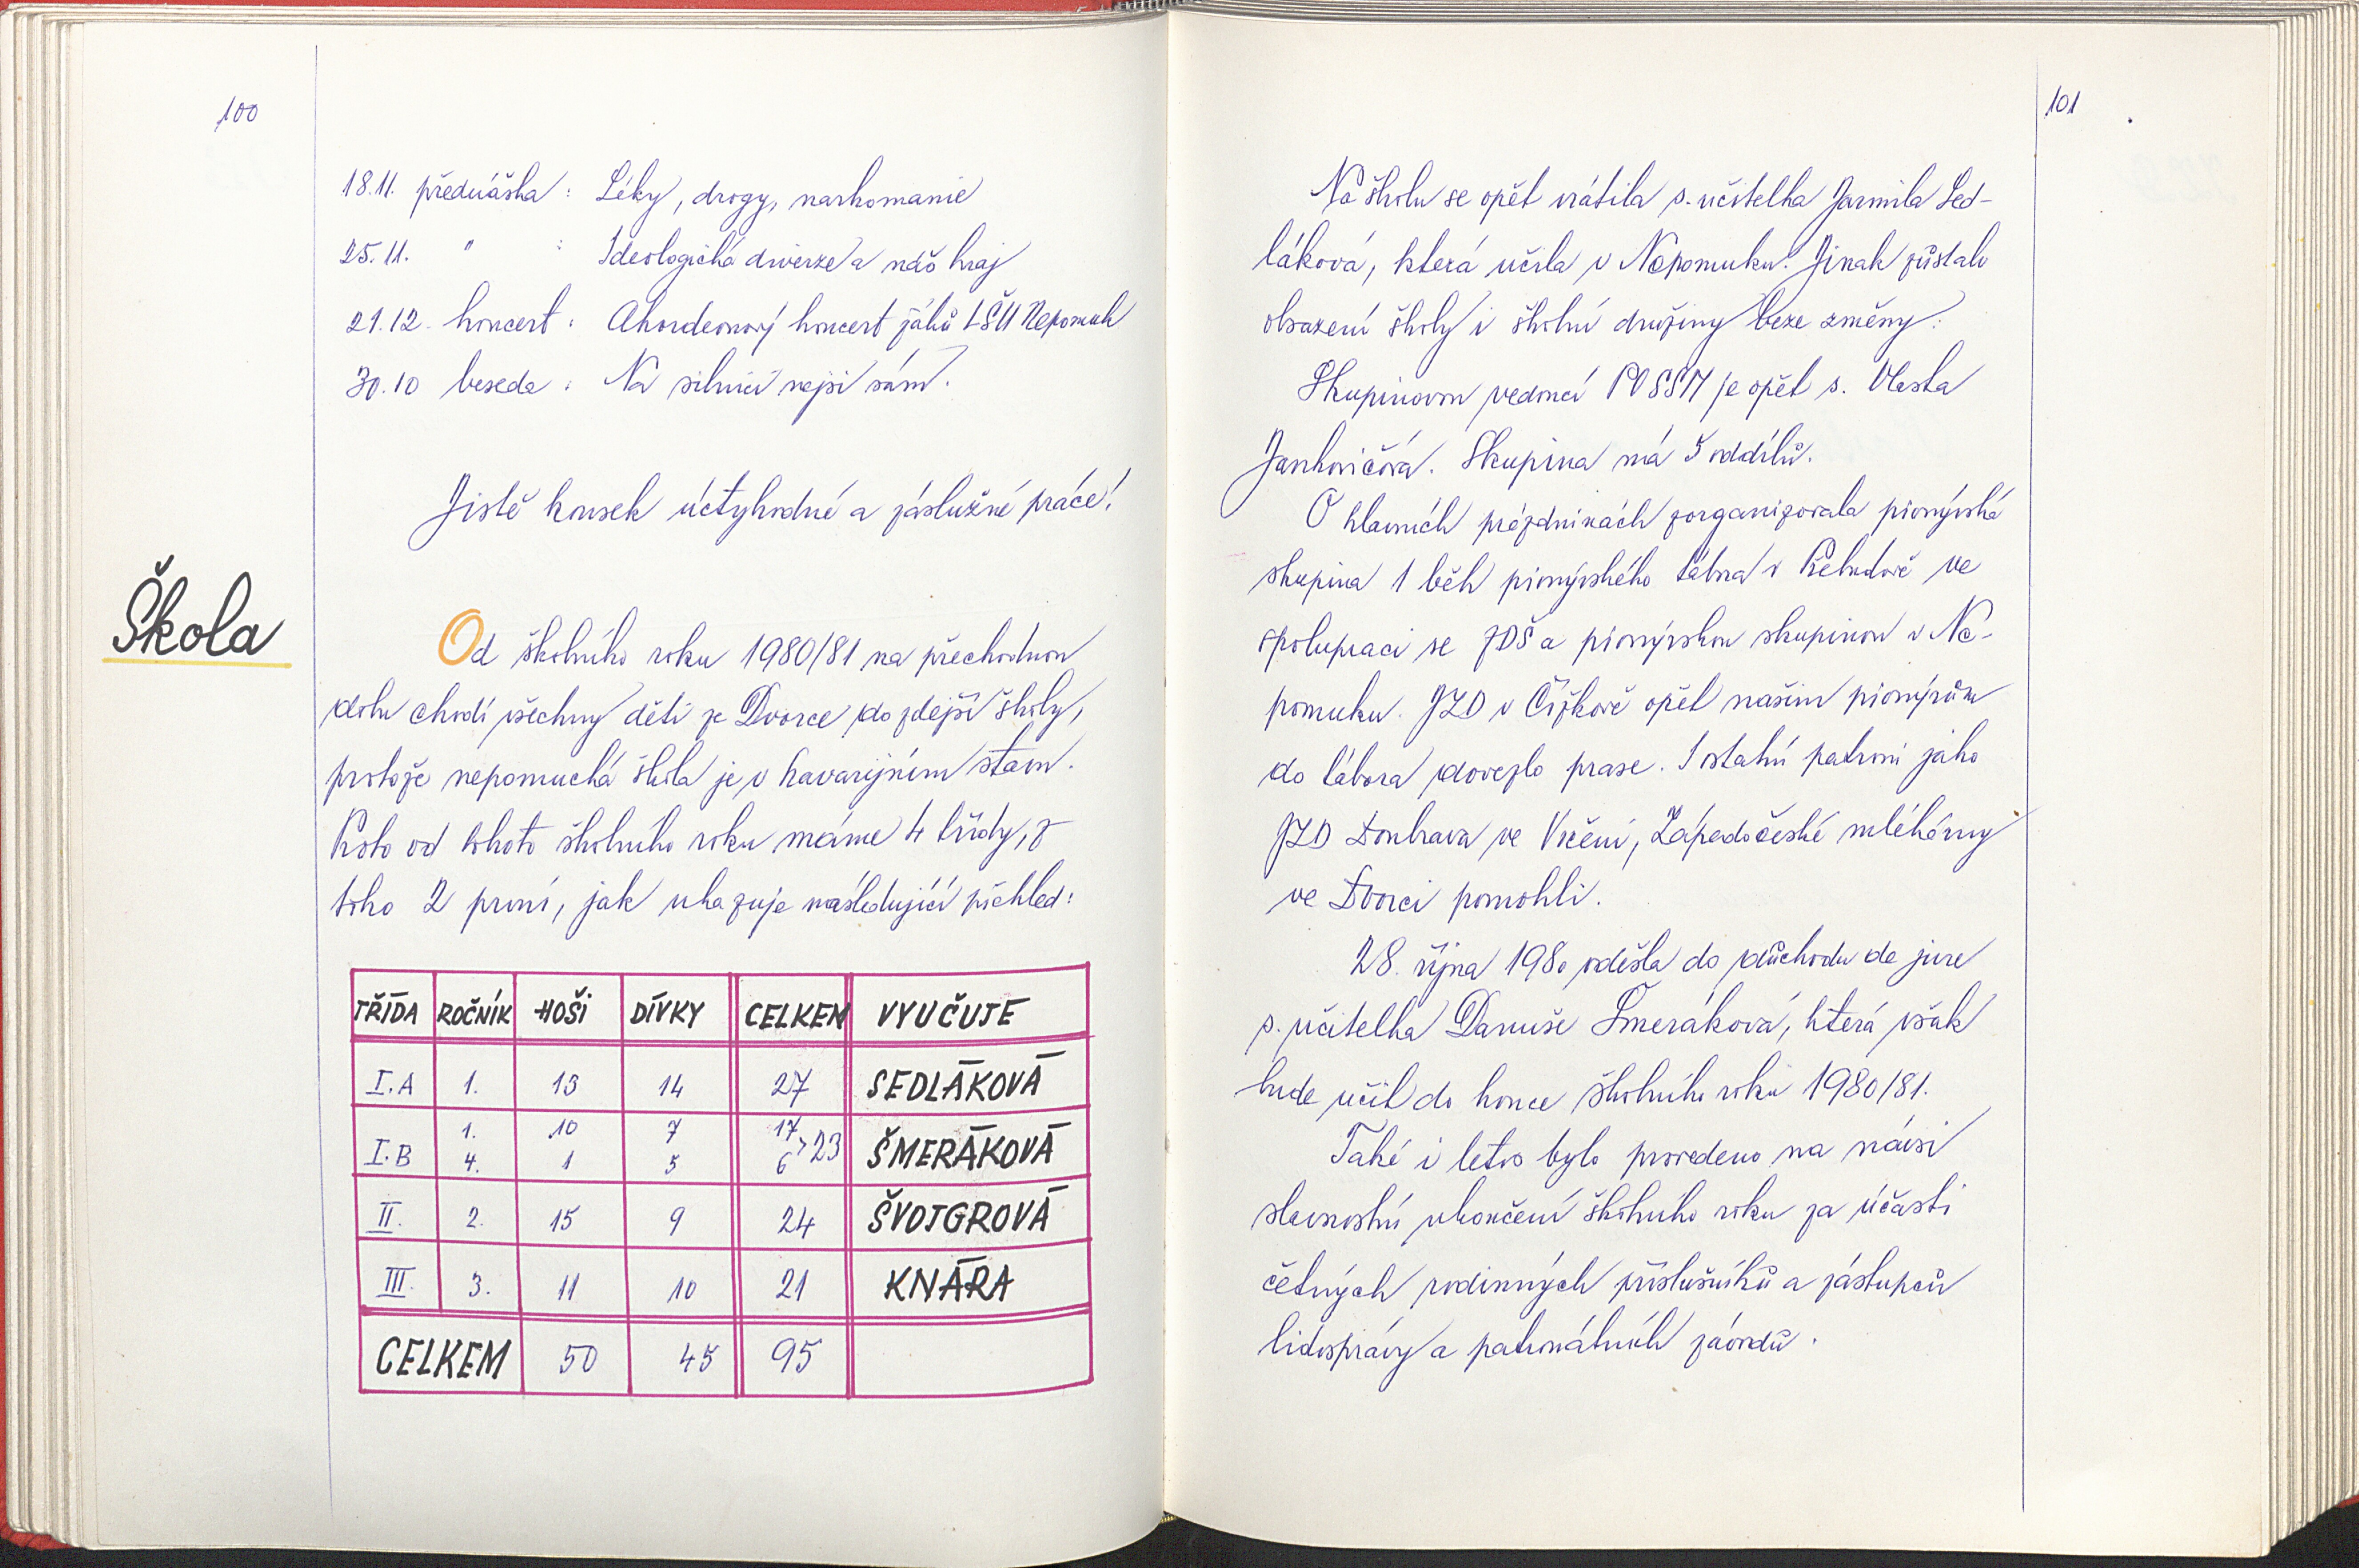 100
18.11. přednáška : Léky, drogy, narkomanie
25.11. " : Ideologická diverze a náš kraj
21.12. koncert : Akordeonový koncert žáků LŠU Nepomuk
30.10 beseda : Na silnici nejsi sám.
Jistě kousek úctyhodné a záslužné práce!
Škola
Od školního roku 1980/81 na přechodnou
dobu chodí všechny děti ze Dvorce do zdejší školy,
protože nepomucká škola je v havarijním stavu.
Proto od tohoto školního roku máme 4 třídy, z
toho 2 první, jak ukazuje následující přehled:
TŘÍDA ROČNÍK HOŠI DÍVKY CELKEM VYUČUJE
I.A 1. 13 14 27 SEDLÁKOVÁ
1. 10 7 17
I.B 4. 1 5 6 >23 ŠMERÁKOVÁ
II. 2. 15 9 24 ŠVOJGROVÁ
III. 3. 11 10 21 KNÁRA
CELKEM 50 45 95
101
Na školu se opět vrátila s. učitelka Jarmila Sed-
láková, která učila v Nepomuku. Jinak zůstalo
obsazení školy i školní družiny beze změny.
Skupinovou vedoucí PO SSM je opět s. Vlasta
Jankovičová. Skupina má 5 oddílů.
O hlavních prázdninách zorganizovala pionýrská
skupina 1 běh pionýrského tábora v ve
spolupraci se ZDŠ a pionýrskou skupinou v Ne-
pomuku. JZD v Čížkově opět našim pionýrům
do tábora dovezlo prase. I ostatní patroni jako
JZD Doubrava ve Vrčeni, Západočeské mlékárny
ve Dvorci pomohli.
28. října 1980 odešla do důchodu de jure
s. učitelka Danuše Šmeráková, která však
bude učit do konce školního roku 1980/81.
Také i letos bylo provedeno na návsi
slavnostní ukončení školního roku za účasti
četných rodinných příslušníků a zástupců
lidosprávy a patronátních závodů.